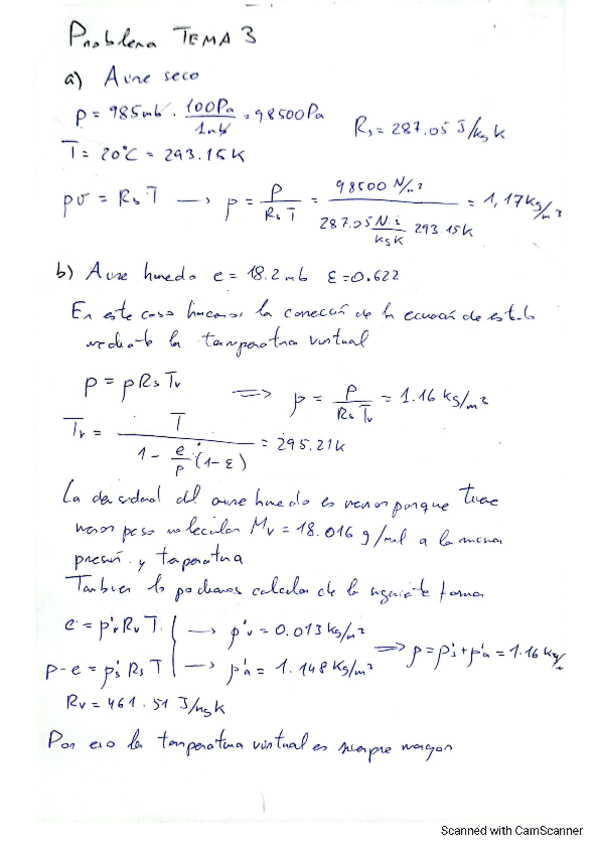 Problema TEMA 3
a) Aire seco
p = 985mb · 100Pa/1mb = 98500Pa
Rs = 287.05 J/kg K
T = 20°C = 293.15K
pv = Rs T → ρ = p/(Rs T) = 98500 N/m²/(287.05 N·m/kg K 293.15K) = 1,17kg/m³
b) Aire humedo e = 18.2mb ε = 0.622
En este caso hacemos la corrección de la ecuación de estado
mediante la temperatura virtual
p = ρ Rs Tv ⟹ ρ = p/(Rs Tv) = 1.16 kg/m³
Tv = T/(1 - e/p · (1-ε)) = 295.21K
La densidad del aire humedo es menor porque tiene
menor peso molecular Mv = 18.016 g/mol a la misma
presión y temperatura
Tambien lo podiamos calcular de la siguiente forma
e = ρ'v Rv T → ρ'v = 0.013 kg/m³
p-e = ρ's Rs T → ρ'a = 1.148 Kg/m³ ⟹ ρ = ρ's + ρ'a = 1.16 kg/
Rv = 461.51 J/kg K
Por eso la temperatura virtual es siempre mayor
Scanned with CamScanner